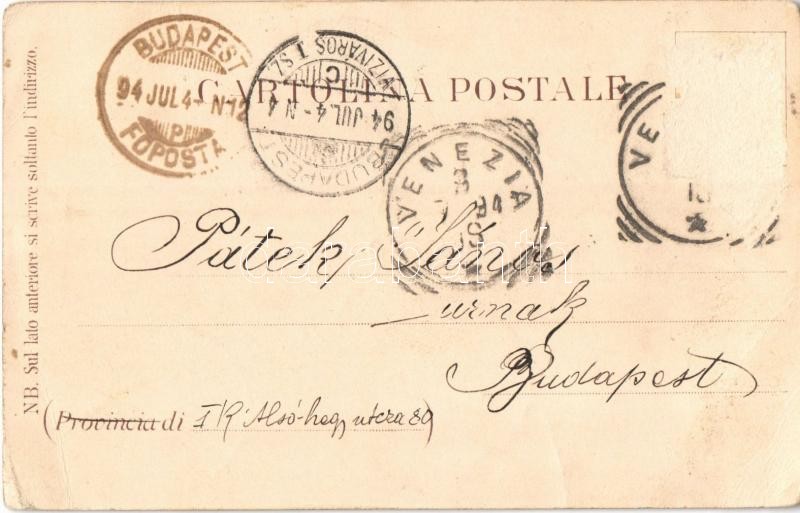 BUDAPEST
94 JUL 4 - N 12
P
FŐPOSTA
VIZIVÁROS 1 SZ.
C
94 JUL 4 - N 4
BUDAPEST
CARTOLINA POSTALE
VENEZIA
VE
NB. Sul lato anteriore si scrive soltanto l'indirizzo.
Pátek János
urnak
Budapest
(Provincia di I K Alsó-hegy utcza 80)